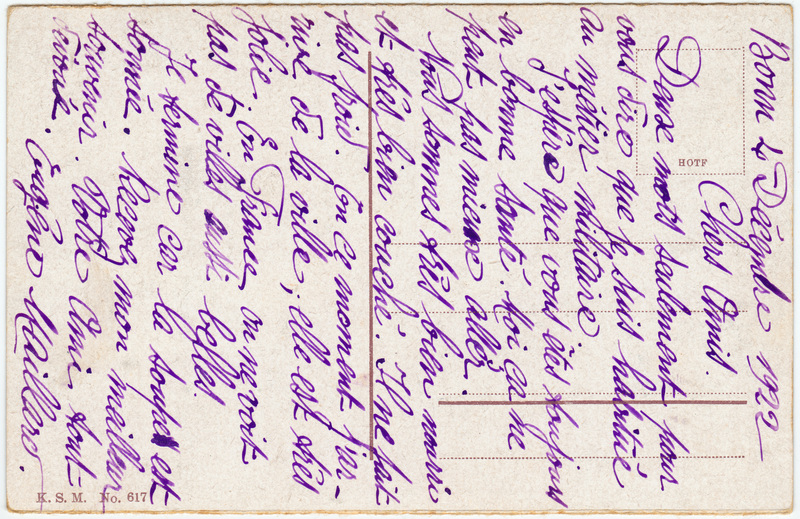 Bonn le Décembre 1922
Chers Amis.
Deux mots seulement pour
vous dire que je suis habitué
au métier militaire
J'espère que vous êtes toujours
en bonne santé. Moi ça ne
peut pas mieux aller.
Nous sommes très bien nourri
et très bien couché. Il ne fait
pas froid. En ce moment j'ar-
rive de la ville, elle est très
jolie. En France on ne voit
pas de villes aussi belles.
Je termine car la soupe est
sonnée. Recevez mon meilleur
souvenir. Votre Ami tout
dévoué. Eugène Maillard.
HOTF
K. S. M. No. 617